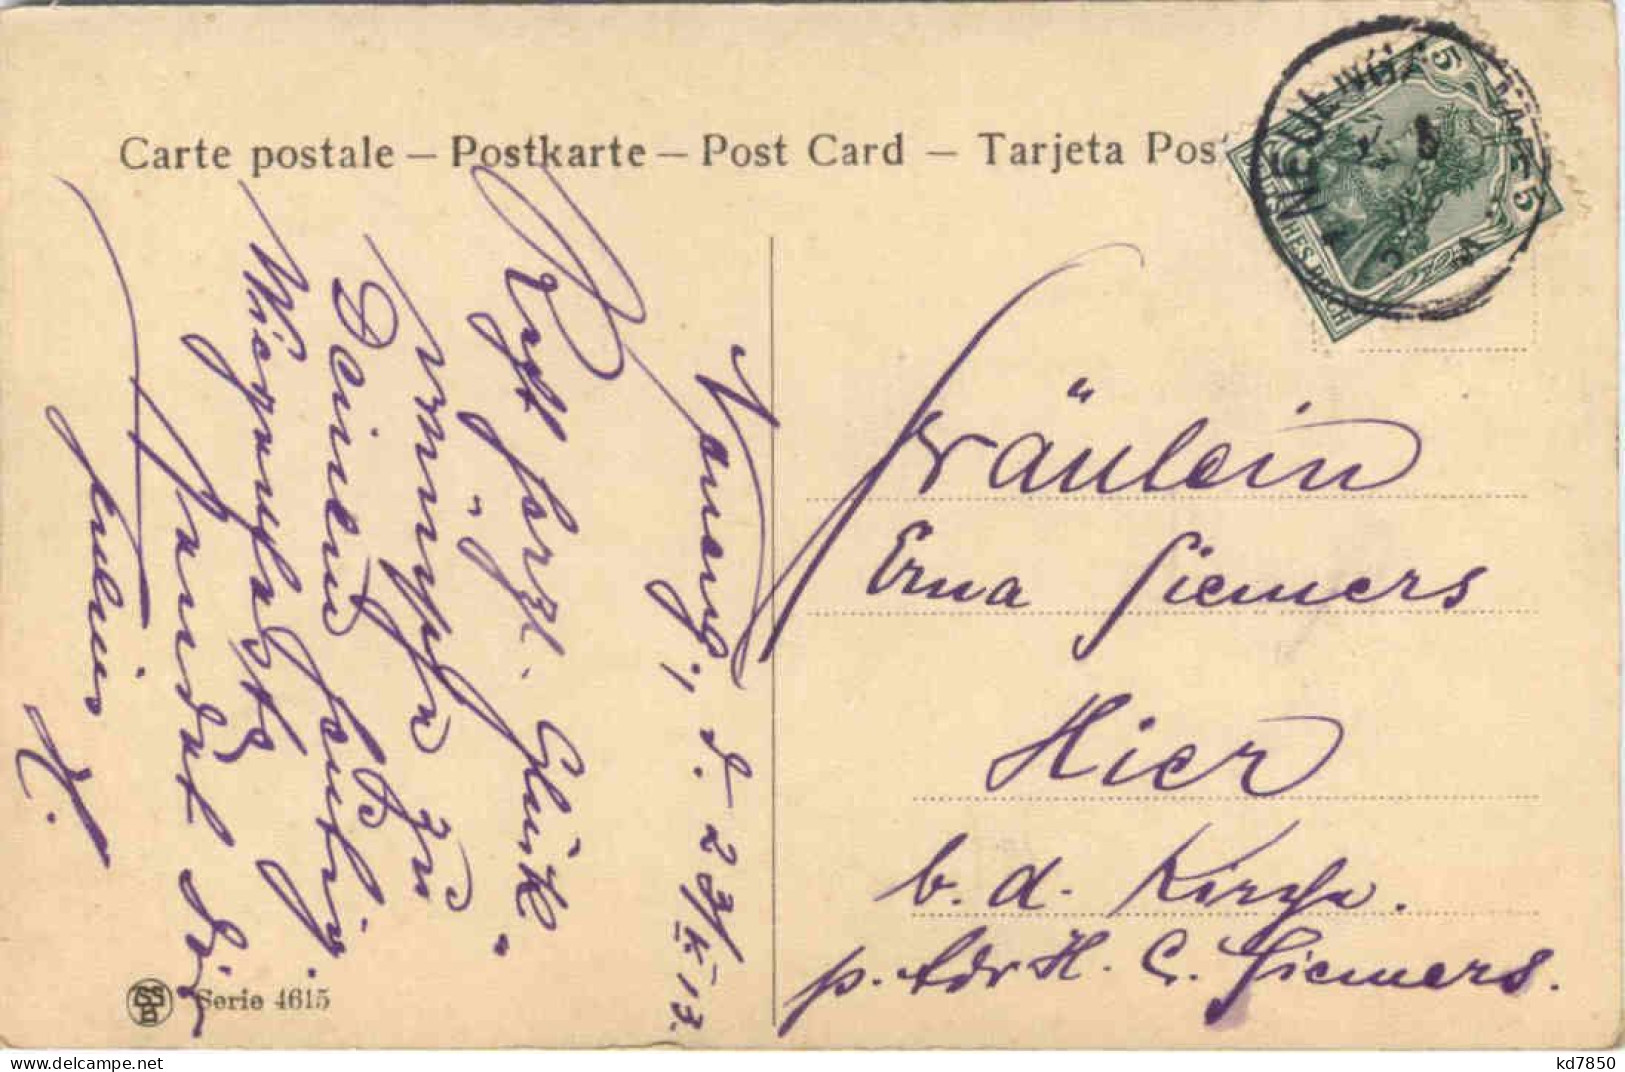 Carte postale — Postkarte — Post Card — Tarjeta Pos
5
5
Fräulein
Erna Siemers
Hier
b. d. Kirche.
p. Adr. H. C. Siemers.
d. 23/IV 13.
Recht herzl. Glück-
wünsche zu
Deinem heutig.
Wiegenfeste
sendet Dir
H.
SSB Serie 4615
delcampe.net
kd7850